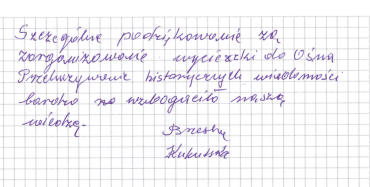 Szczególne podziękowanie za
zorganizowanie wycieczki do Ośna
Przekazywanie historycznych wiadomości
bardzo na wzbogaciło naszą
wiedzę.